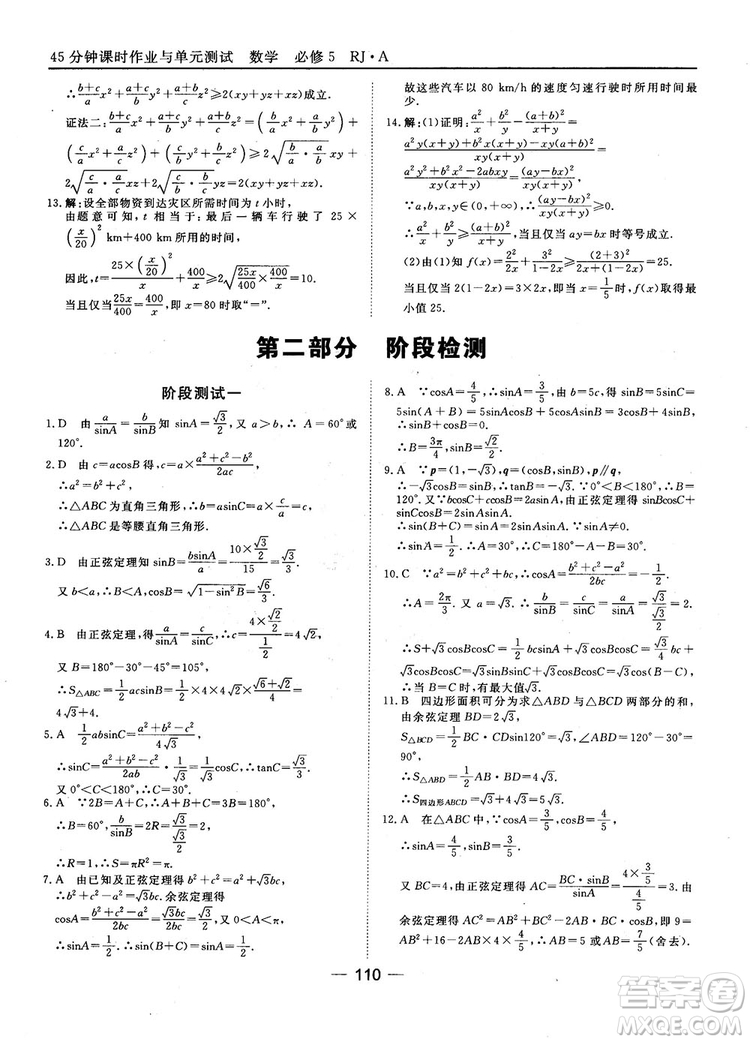 45分钟课时作业与单元测试 数学 必修5 RJ·A
∴(b+c)/a x²+(c+a)/b y²+(a+b)/c z²≥2(xy+yz+zx)成立.
证法二：(b+c)/a x²+(c+a)/b y²+(a+b)/c z²=(b/a x²+a/b y²)
+(c/b y²+b/c z²)+(c/a x²+a/c z²)≥2√(b/a·a/b)xy+
2√(c/b·b/c)yz+2√(c/a·a/c)xz=2(xy+yz+xz)成立.
13.解：设全部物资到达灾区所需时间为 t 小时，
由题意可知，t 相当于：最后一辆车行驶了 25×
(x/20)² km+400 km所用的时间，
因此，t=(25×(x/20)²+400)/x≥2√(25x/400×400/x)=10.
当且仅当25x/400=400/x，即 x=80 时取“=”.
故这些汽车以 80 km/h 的速度匀速行驶时所用时间最
少.
14.解：(1)证明：a²/x+b²/y-(a+b)²/(x+y)=
(a²y(x+y)+b²x(x+y)-(a+b)²xy)/(xy(x+y))
=(a²y²+b²x²-2abxy)/(xy(x+y))=(ay-bx)²/(xy(x+y)).
∵a,b,x,y∈(0,+∞),∴(ay-bx)²/(xy(x+y))≥0.
∴a²/x+b²/y≥(a+b)²/(x+y)，当且仅当 ay=bx 时等号成立.
(2)由(1)可知 f(x)=2²/2x+3²/(1-2x)≥(2+3)²/(2x+1-2x)=25.
当且仅当 2(1-2x)=3·2x，即 x=1/5时，f(x)取得最
小值 25.
第二部分 阶段检测
阶段测试一
1.D 由a/sinA=b/sinB知 sinA=√3/2，又 a>b，∴A=60°或
120°.
2.D 由 c=acosB得，c=a×(a²+c²-b²)/2ac，
∴a²=b²+c²，
∴△ABC为直角三角形，∴b=asinC=a×c/a=c.
∴△ABC是等腰直角三角形.
3.D 由正弦定理知 sinB=bsinA/a=(10×√3/2)/15=√3/3.
又 b<a，∴B<A，cosB=√(1-sin²B)=√6/3.
4.B 由正弦定理，得a/sinA=c/sinC，∴c=(4×√3/2)/(1/2)=4√3，
又 B=180°-30°-45°=105°，
∴S△ABC=1/2acsinB=1/2×4×4√3(√6+√2)/4
5.A 1/2absinC=(a²+b²-c²)/4√3，
∴sinC=(a²+b²-c²)/2ab·√3/3=√3/3cosC，∴tanC=√3/3.
又0°<C<180°，∴C=30°.
6.A ∵2B=A+C，A+B+C=180°，
∴B=60°，b/sinB=2R=√3/(√3/2)=2，
∴R=1. S=πR²=π.
7.A 由已知及正弦定理得 b²+c²=a²+√3bc，由余弦定理得
cosA=(b²+c²-a²)/2bc=√3bc/2bc=√3/2，又 0<A<π，∴A=π/6，
∴sinA=sinπ/6=1/2.
8.A ∵cosA=4/5，∴sinA=3/5，由 b=5c，得 sinB=5sinC=
5sin(A+B)=5sinAcosB+5cosAsinB=3cosB+4sinB，
∴sinB+cosB=0.
∴B=3π/4，sinB=√2/2.
9.A ∵p=(1,-√3)，q=(cosB,sinB)，p∥q，
∴-√3cosB=sinB，∴tanB=-√3，∵0°<B<180°，∴B=
120°.又bcosC+ccosB=2asinA，由正弦定理得 sinBcosC+
sinCcosB=2sinAsinA.
∴sin(B+C)=2sinAsinA，∵sinA≠0.
∴sinA=1/2，∴A=30°，C=30°.
10.C ∵a²=b²+c²+bc，∴cosA=(b²+c²-a²)/2bc=-1/2，
∴A=2π/3.又 a=√3，故 S=1/2bcsinA=1/2·asinB/sinA·asinC=
√3sinBsinC，
∴S+√3cosBcosC=1/2bcsinA+√3cosBcosC=√3sinBsinC+
√3cosBcosC=√3cos(B-C).
∴当 B=C 时，有最大值√3.
11.B 四边形面积可分为求△ABD 与△BCD 两部分的和，
由余弦定理 BD=2√3，
S△BCD=1/2BC·CDsin120°=√3，
∴S△ABD=1/2×4×2√3=4√3，
∴S四边形ABCD=√3+4√3=5√3.
12.A 在△ABC 中，∵cosB=4/5，∴sinB=3/5，
又 BC=4，由正弦定理得 AC=BC·sinB/(4/5)=(4×3/5)/(4/5)=3，由
余弦定理得 AC²=AB²+BC²-2AB·BC·cosB，即 9=
AB²+16-2AB·4·4/5，解得 AB=5 或 AB=7/5(舍去).
110
答案圈